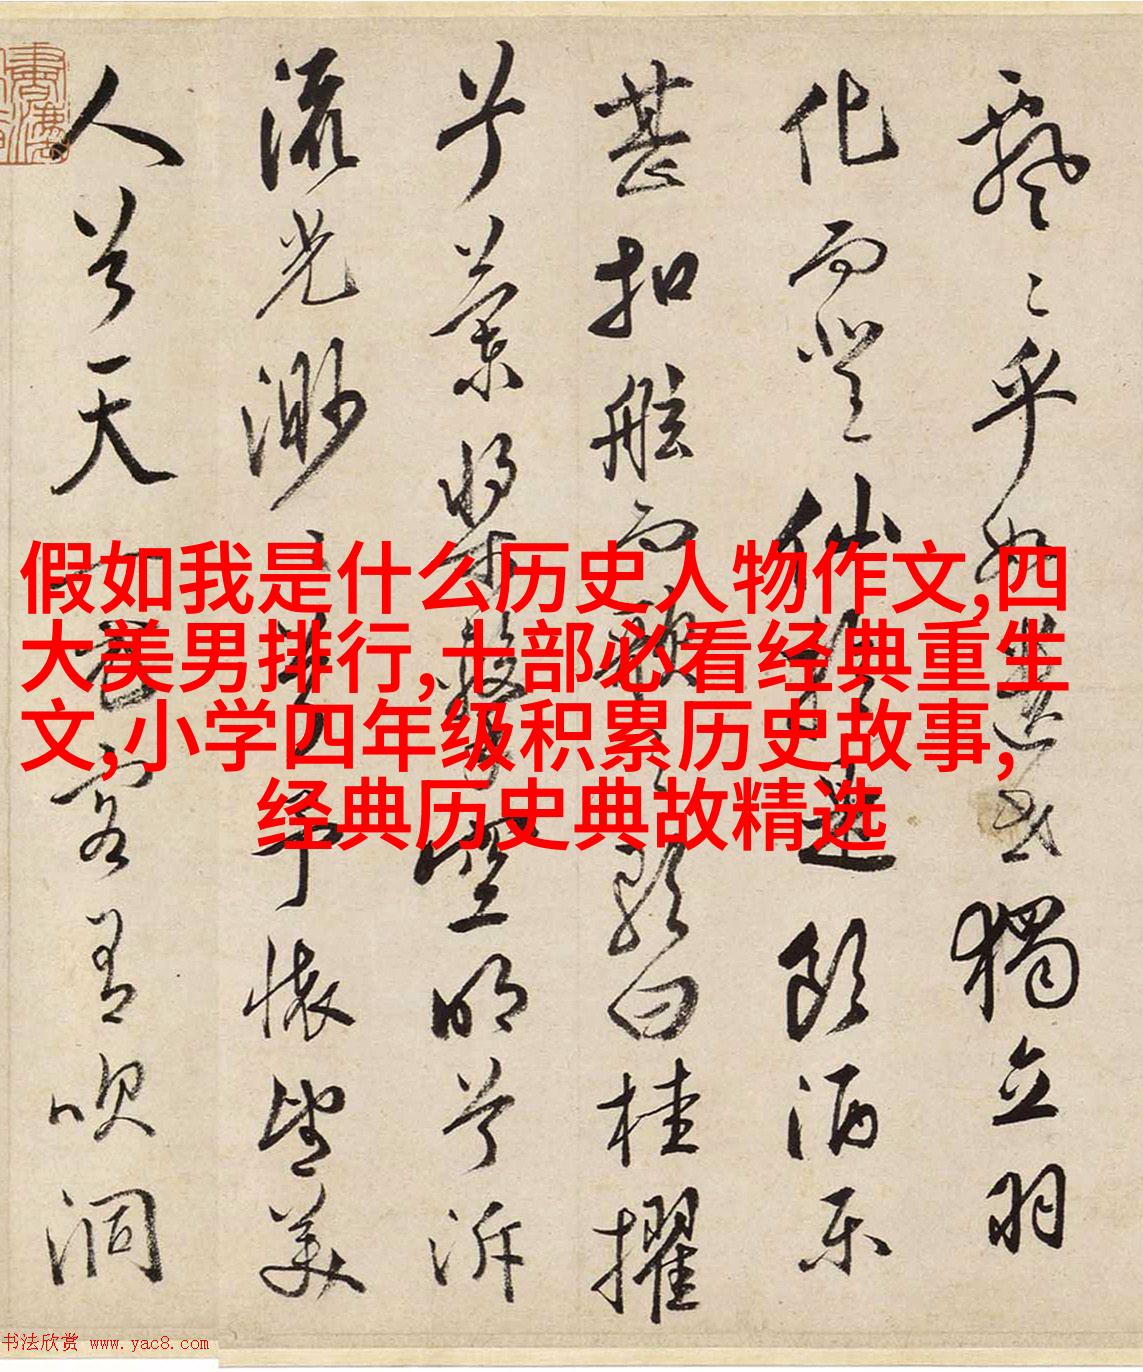 飄〻乎如遺世獨立羽
化而登仙於是飲酒樂
甚扣舷而歌之歌曰桂擢
兮蘭槳擊空明兮泝
流光渺〻兮予懷望美
人兮天一方客有吹洞
假如我是什么历史人物作文,四
大美男排行,十部必看经典重生
文,小学四年级积累历史故事,
经典历史典故精选
书法欣赏 www.yac8.com